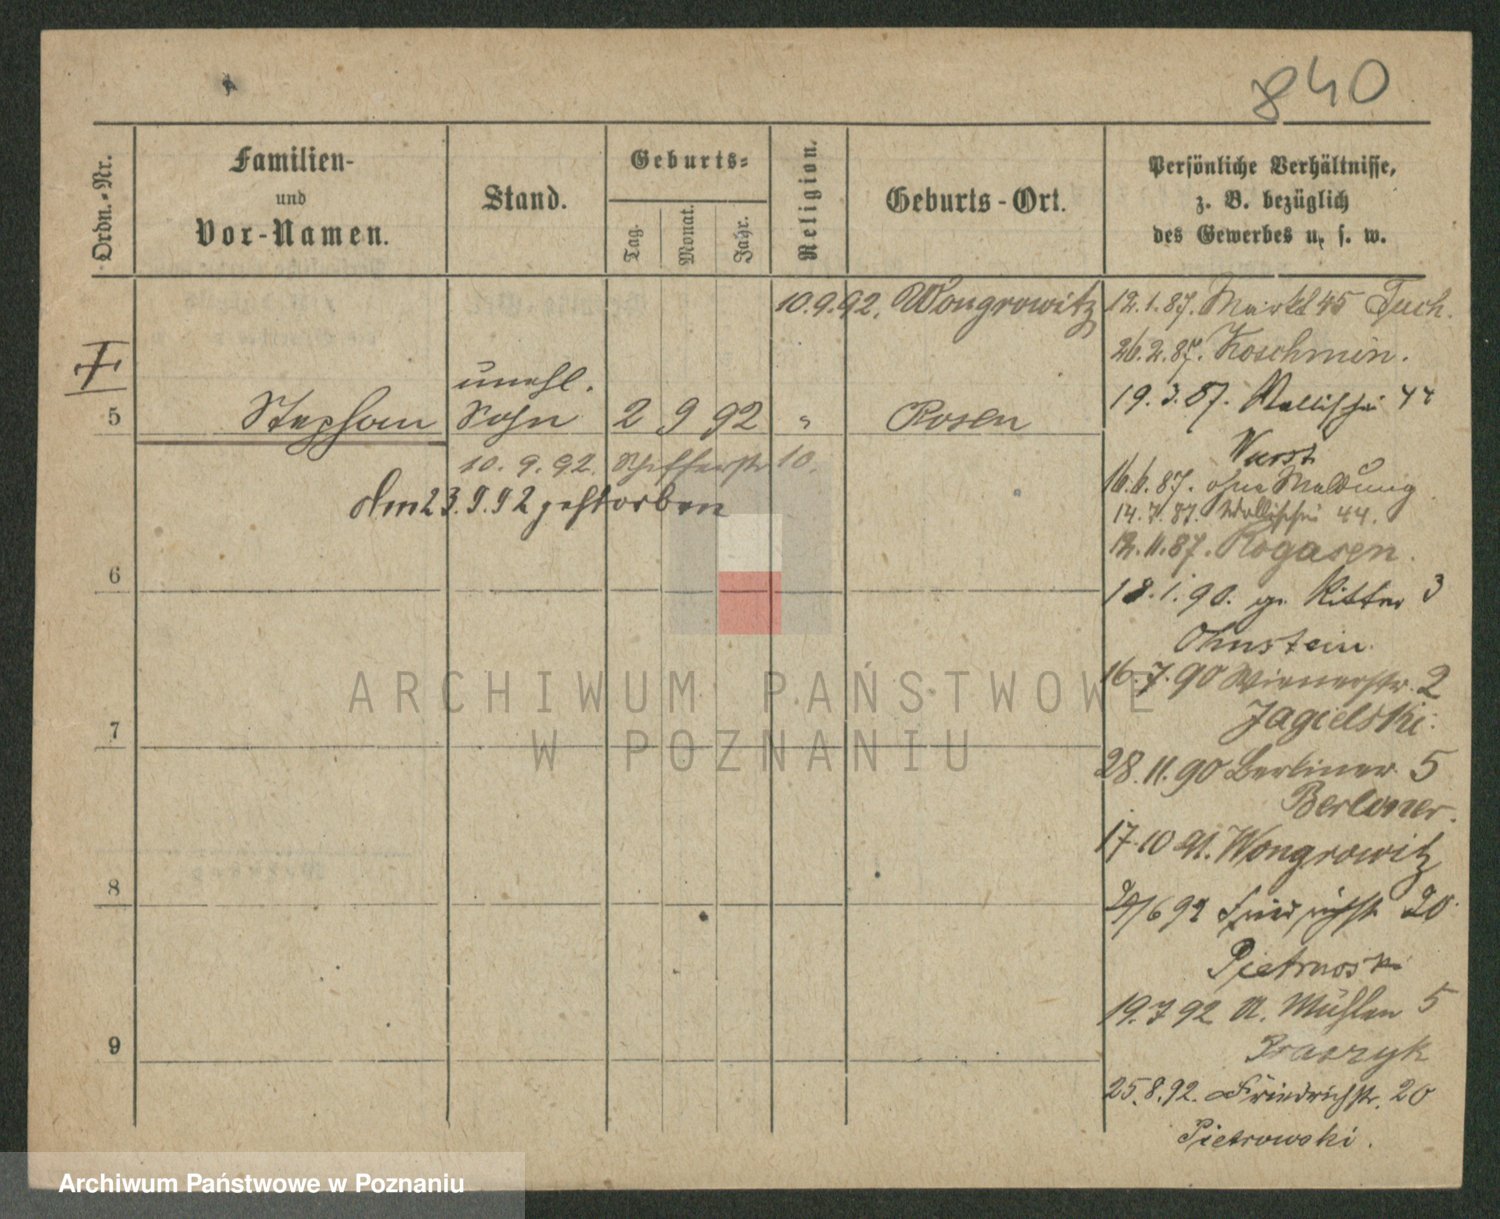 840
Ordn.-Nr.
Familien-
und
Vor-Namen.
Stand.
Geburts-
Tag.
Monat.
Jahr.
Religion.
Geburts-Ort.
Persönliche Verhältnisse,
z. B. bezüglich
des Gewerbes u. s. w.
10.9.92. Wongrowitz
12.1.87. Markt 45 Tuch.
26.2.87. Koschmin.
19.3.87. Wallischei 44
Wurst
16.6.87. ohne Meldung
14.7.87. Wallischei 44.
12.11.87. Rogasen.
18.1.90. gr. Ritter 3
Ohnstein.
16.7.90 Wienerstr. 2
Jagielski.
28.11.90 Berliner 5
Berliner.
17.10 91. Wongrowitz
29/6 92 Friedrichstr 20
Pietrowski
19.7 92 N. Mühlen 5
25.8.92. Friedrichstr. 20
Pietrowski.
unehl.
5 Stephan Sohn 2 9 92 " Posen
10.9.92. Schifferstr 10.
Am 23.9.92 gestorben
6
7
8
9
ARCHIWUM PAŃSTWOWE
W POZNANIU
Archiwum Państwowe w Poznaniu